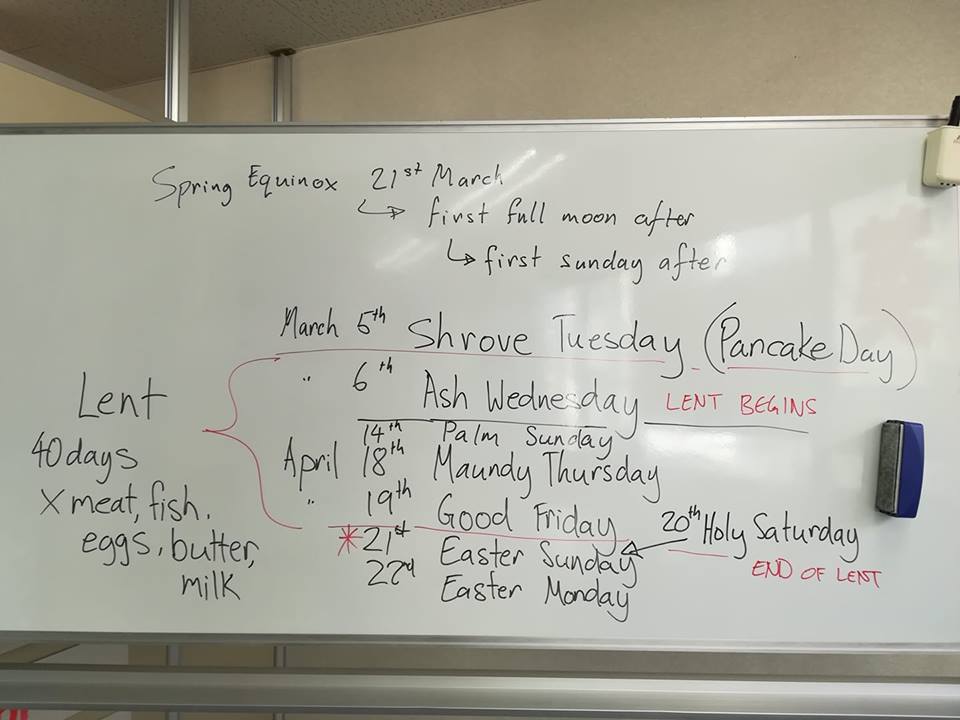 Spring Equinox 21st March
↳ first full moon after
↳ first sunday after
March 5th Shrove Tuesday (Pancake Day)
" 6th Ash Wednesday LENT BEGINS
14th Palm Sunday
April 18th Maundy Thursday
" 19th Good Friday
20th Holy Saturday
END OF LENT
*21st Easter Sunday
22nd Easter Monday
Lent
40days
X meat, fish,
eggs, butter,
milk